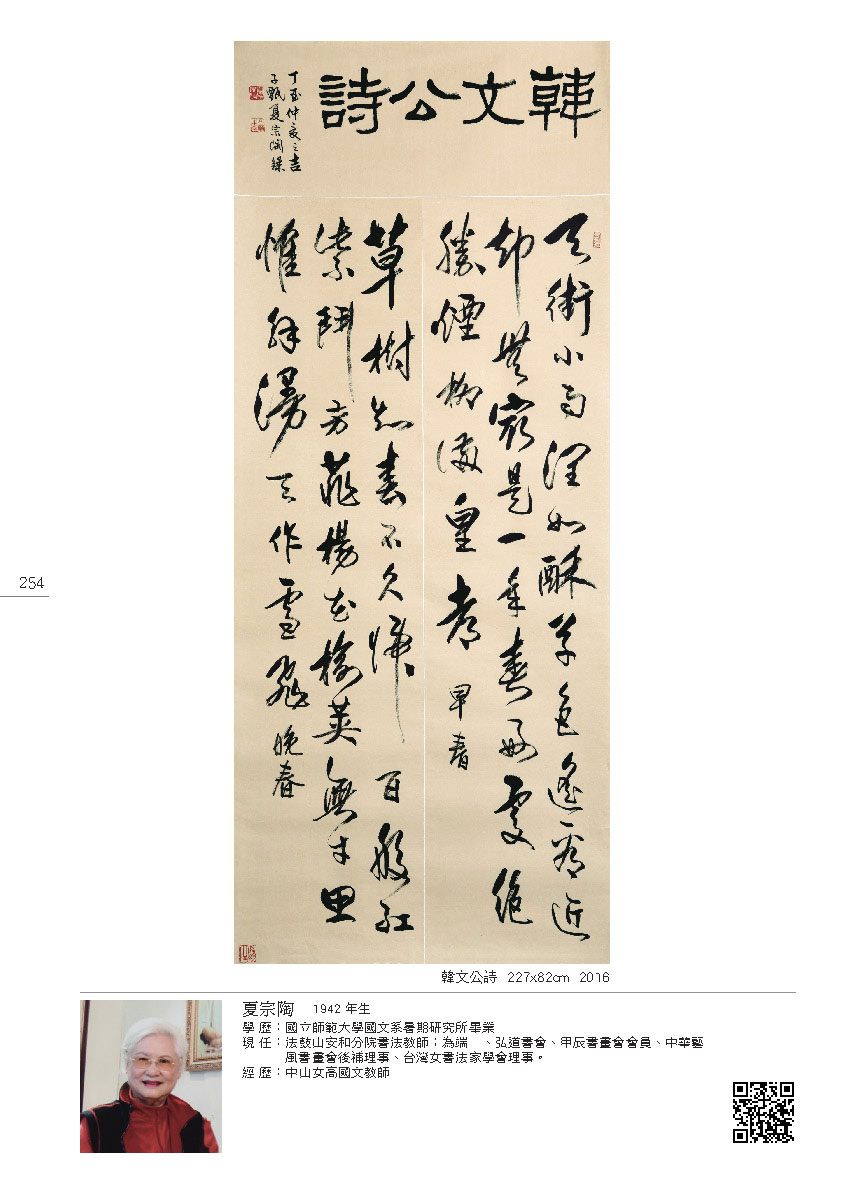 韓文公詩
天街小雨潤如酥草色遙看近
却無最是一年春好處絕
勝煙柳滿皇都 早春
草樹知春不久歸 百般紅
紫鬥芳菲楊花榆莢無才思
惟解漫天作雪飛 晚春
丁酉仲夏之吉
子甄夏宗陶錄
254
韓文公詩 227x82cm 2016
夏宗陶 1942 年生
學 歷：國立師範大學國文系暑期研究所畢業
現 任：法鼓山安和分院書法教師；為端 、弘道書會、甲辰書畫會會員、中華藝
風書畫會後補理事、台灣女書法家學會理事。
經 歷：中山女高國文教師